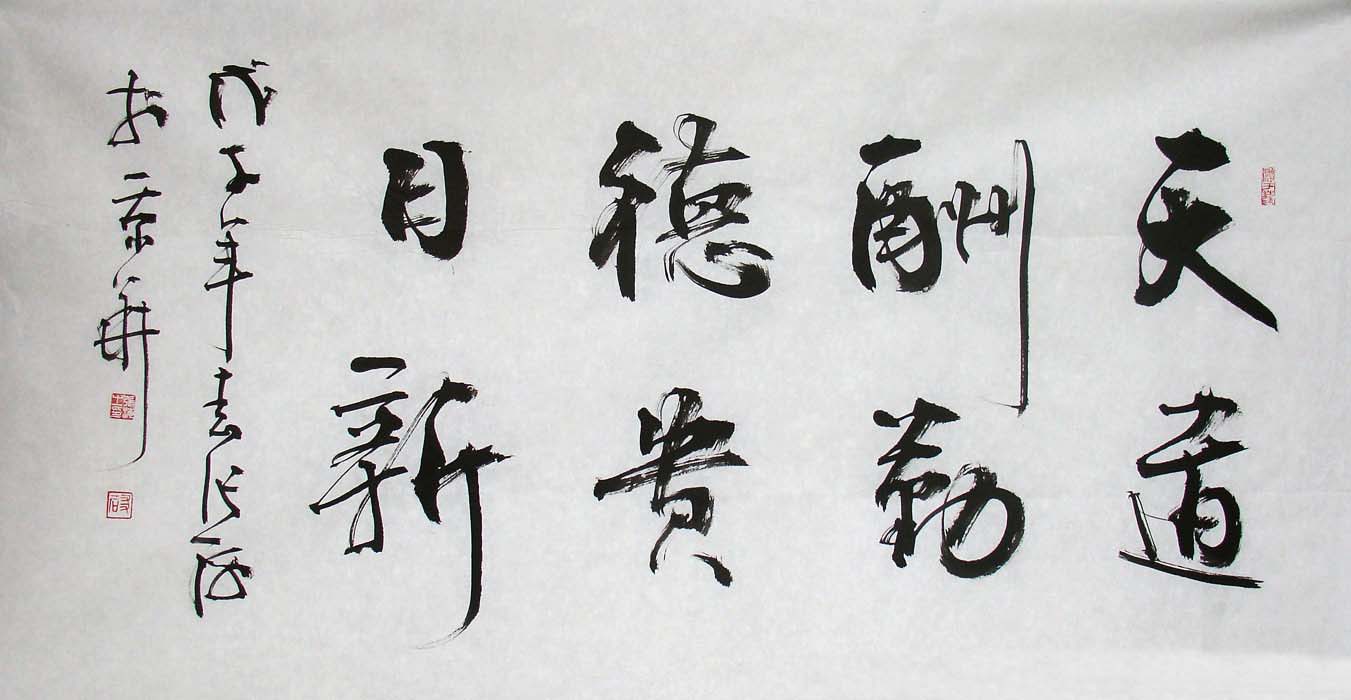 天道
酬勤
德贵
日新
戊子年书张
于京华